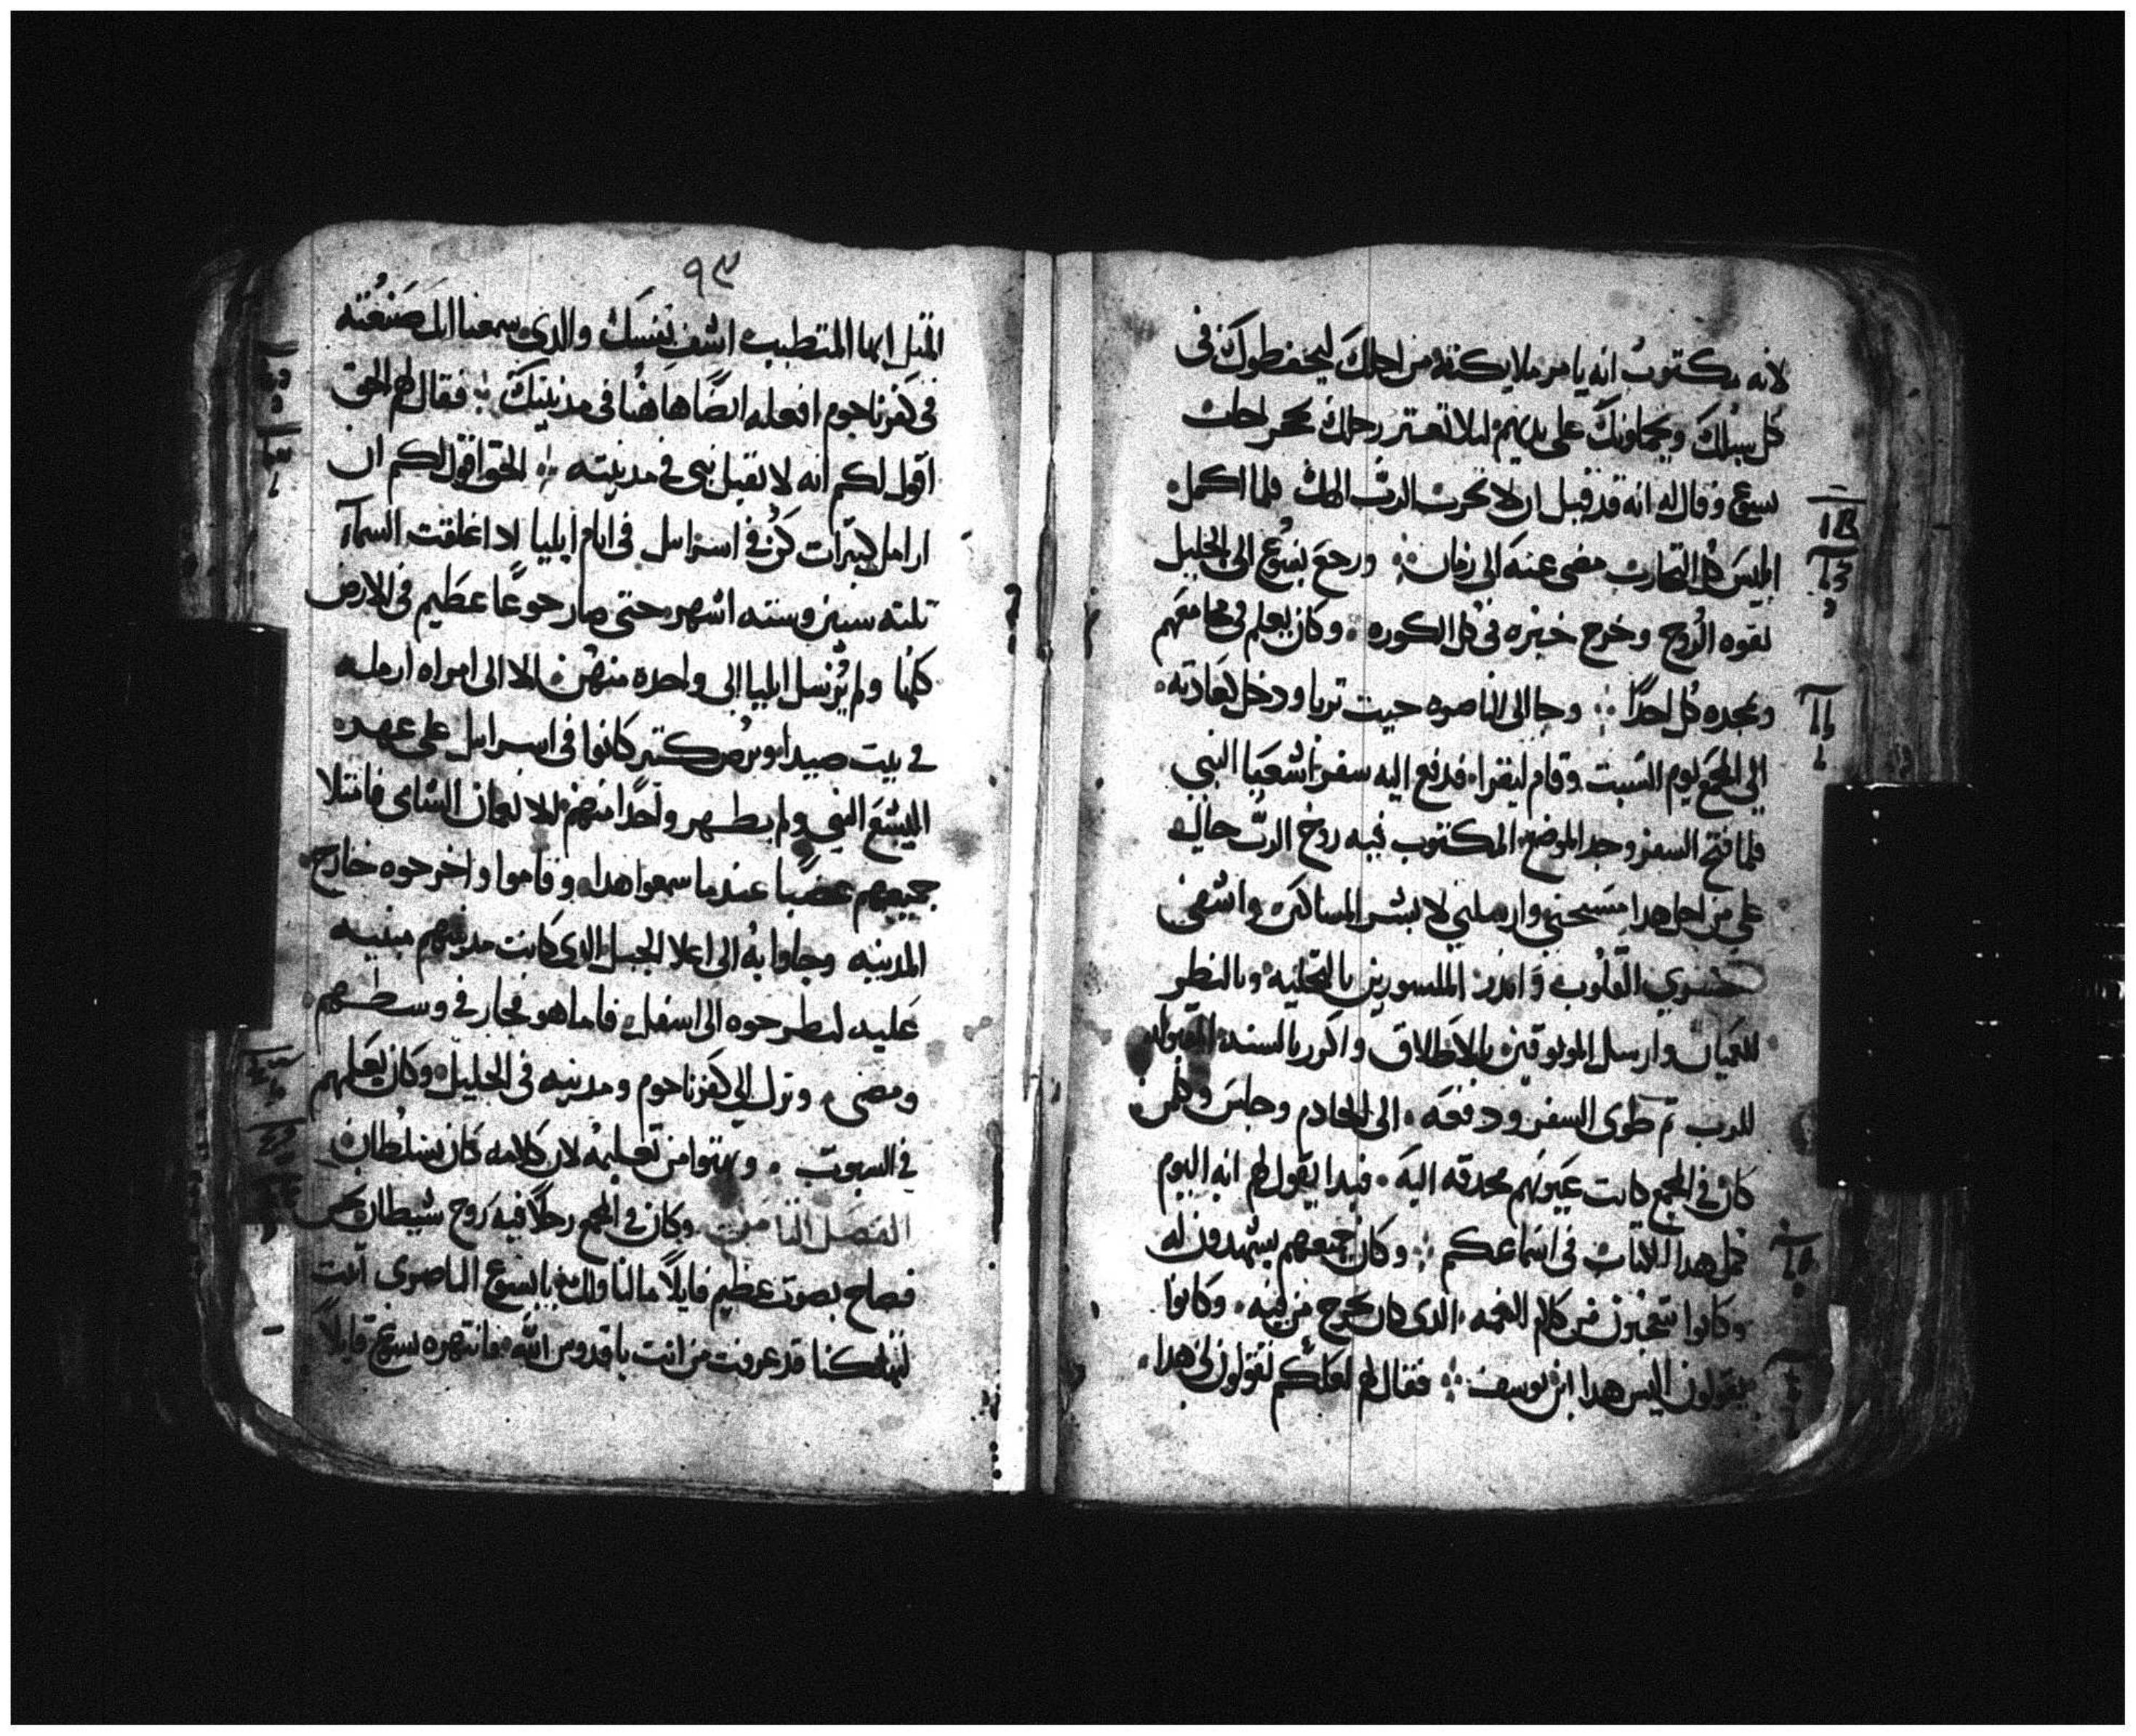 لانه مكتوب انه يامر ملايكته من اجلك ليحفظوك في
كل سبلك ويحملونك على يديهم ليلا تعتر رجلك بحجر اجاب
يسوع وقال له انه قد قيل ان لا تجرب الرب الهك فلما اكمل
ابليس كل التجارب مضى عنه الى زمان ورجع يسوع الى الجليل
بقوه الروح وخرج خبره في كل الكوره وكان يعلم في مجامعهم
ويمجده كل احدًا وجا الى الناصره حيت تربا ودخل كعادته
الى المجمع يوم السبت وقام ليقرا فدفع اليه سفر اشعيا النبي
فلما فتح السفر وجد الموضع المكتوب فيه روح الرب حاله
علي من اجل هدا مسحني وارسلني لابشر المساكين واشفي
القلوب وانذر بالتخليه وبالنظر
للعميان وارسل الموتوقين بالاطلاق واكرز بالسنه المقبوله
للرب تم طوى السفر ودفعه الى الخادم وجلس وكلمن
كان في المجمع كانت عيونهم محدقه اليه فبدا يقول لهم انه اليوم
كمل هدا الكتاب في اسماعكم وكان جميعهم يشهدون له
وكانوا يتعجبون من كلام النعمه الدى كان يخرج من فيه وكانوا
يقولون اليس هدا ابن يوسف فقال لهم لعلكم تقولون لى هدا
٩٣
المتل ايها المتطبب اشف نفسك والدى سمعنا انك صنعته
في كفرناحوم افعله ايضًا هاهنا في مدينتك فقال لهم الحق
اقول لكم انه لا يقبل نبي في مدينته الحق اقول لكم ان
ارامل كتيرات كن في اسراييل في ايام ايليا اد اغلقت السمآ
تلته سنين وسته اشهر حتى صار جوعًا عظيم في الارض
كلها ولم يرسل ايليا الى واحده منهن الا الى امراه ارمله
في بيت صيدا وبرص كتير كانوا في اسراييل على عهد
اليشع النبي ولم يطهر واحدًا منهم الا نعمان الشامي فامتلا
جميعهم غضبًا عندما سمعوا هدا وقاموا واخرجوه خارج
المدينه وجاوا به الى اعلا الجبل الدى كانت مدينتهم مبنيه
عليه ليطرحوه الى اسفل فاما هو فجاز في وسطهم
ومضى ونزل الى كفرناحوم ومدينه في الجليل وكان يعلمهم
في السبوت وبهتوا من تعليمه لان كلامه كان بسلطان
الفصل الثامن وكان في المجمع رجلاً فيه روح شيطان نجس
فصاح بصوت عظيم قايلاً ما لنا ولك يا يسوع الناصرى اتيت
لتهلكنا قد عرفت من انت يا قدوس الله فانتهره يسوع قايلاً